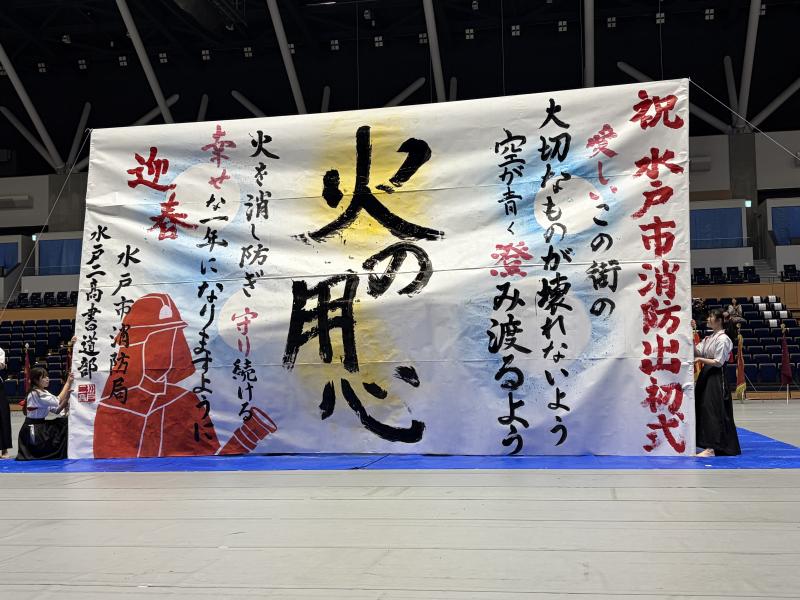 祝 水戸市消防出初式
愛しいこの街の
大切なものが壊れないよう
空が青く澄み渡るよう
火の用心
火を消し防ぎ守り続ける
幸せな一年になりますように
迎春
水戸市消防局
水戸二高書道部